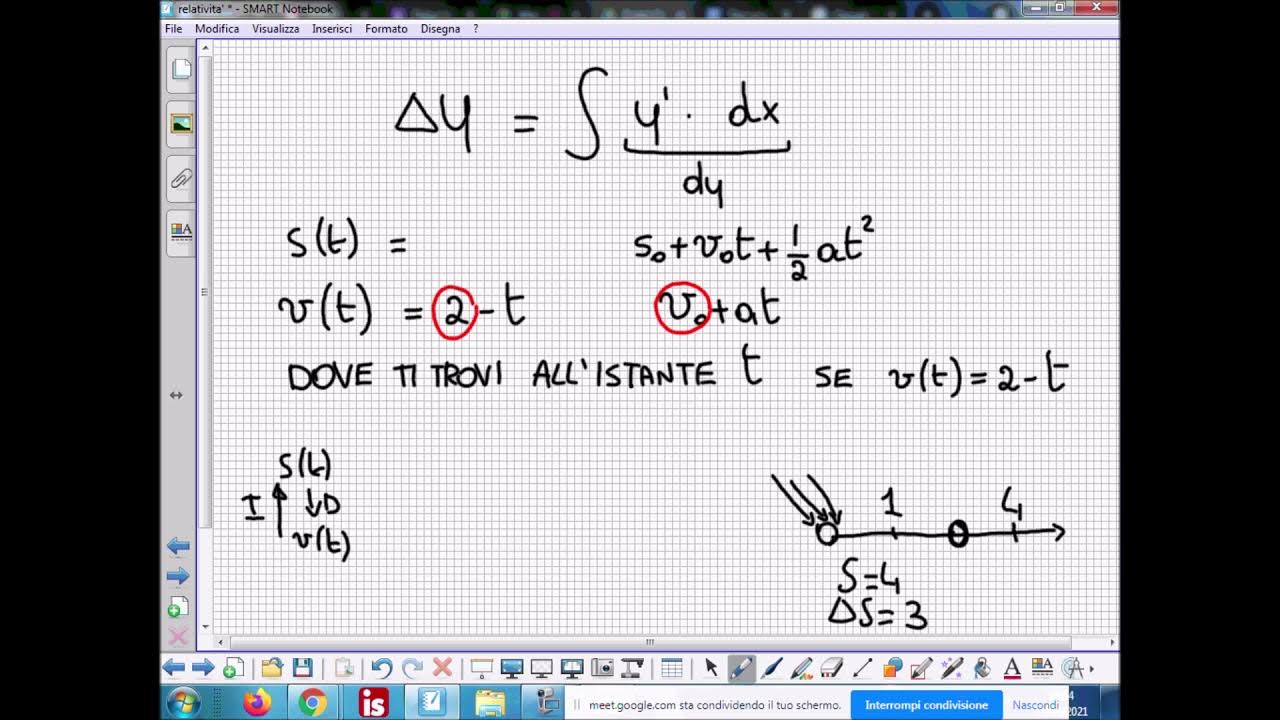 relativita' * - SMART Notebook
File Modifica Visualizza Inserisci Formato Disegna ?
ΔY = ∫ y' · dx
dy
S(t) = S₀+v₀t+½at²
v(t) = 2-t v₀+at
DOVE TI TROVI ALL'ISTANTE t SE v(t)=2-t
S(t)
I ↑ ↓D
v(t)
1 4
S=4
ΔS=3
meet.google.com sta condividendo il tuo schermo. Interrompi condivisione Nascondi
2021